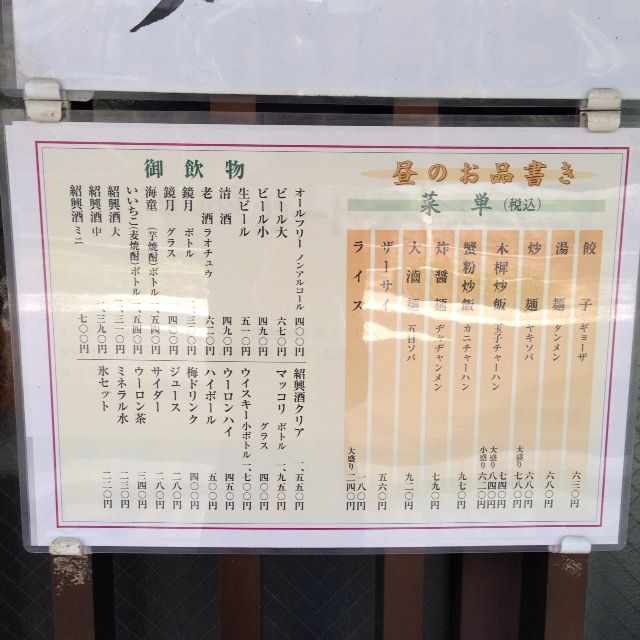 昼のお品書き
菜単(税込)
餃子 ギョーザ 六三〇円
湯麺 タンメン 六八〇円
炒麺 ヤキソバ 六八〇円
大盛り 七八〇円
木樨炒飯 玉子チャーハン 七四〇円
大盛り 八四〇円
小盛り 六二〇円
蟹粉炒飯 カニチャーハン 九七〇円
炸醤麺 ヂャヂャンメン 七九〇円
大滷麺 五目ソバ 九二〇円
ザーサイ 五六〇円
ライス 一八〇円
大盛り 二四〇円
御飲物
オールフリー ノンアルコール 四〇〇円
ビール大 六七〇円
ビール小 四九〇円
生ビール 五一〇円
清酒 四九〇円
老酒 ラオチュウ 六二〇円
鏡月 ボトル 二、三一〇円
鏡月 グラス 四〇〇円
海童(芋焼酎)ボトル 二、五四〇円
いいちこ(麦焼酎)ボトル 二、五四〇円
紹興酒 大 二、三一〇円
紹興酒 中 一、三九〇円
紹興酒 ミニ 七〇〇円
紹興酒クリア 一、五五〇円
マッコリ ボトル 一、九五〇円
グラス 四〇〇円
ウイスキー小ボトル 一、七〇〇円
ウーロンハイ 四五〇円
ハイボール 五〇〇円
梅ドリンク 四〇〇円
ジュース 二八〇円
サイダー 二八〇円
ウーロン茶 三四〇円
ミネラル水 二三〇円
氷セット 二二〇円